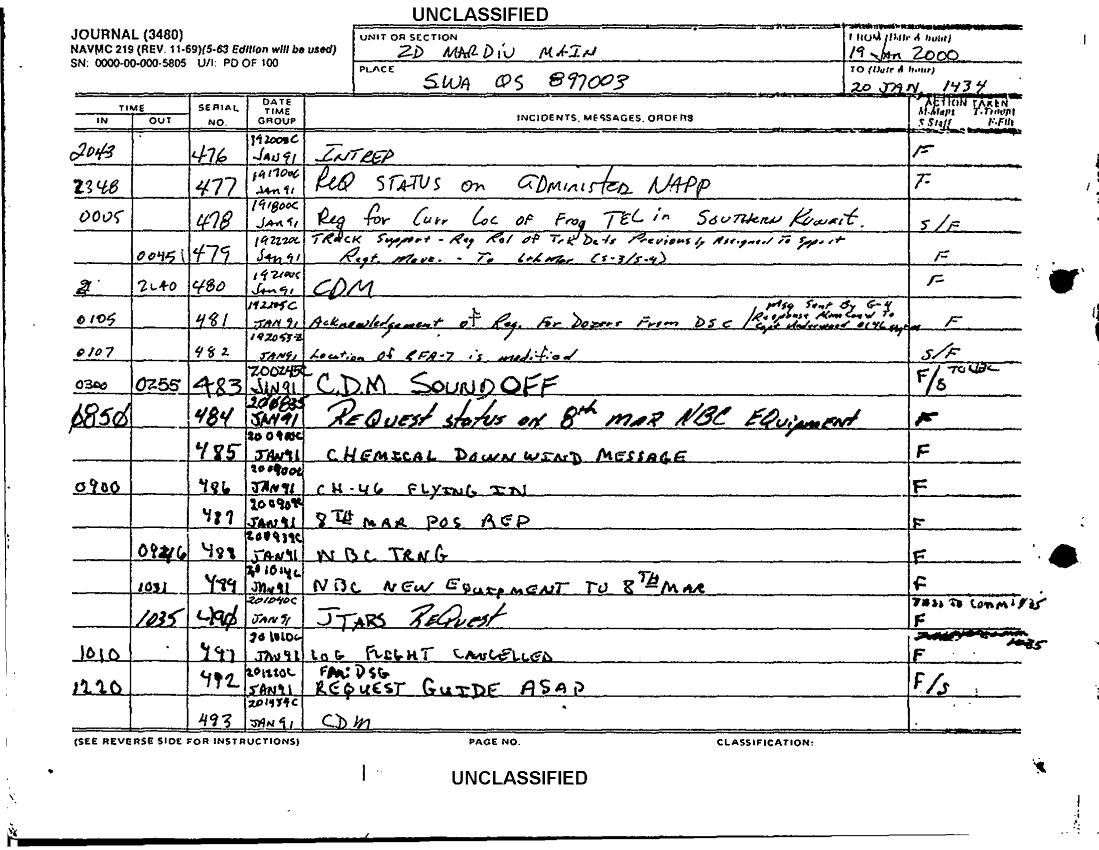 UNCLASSIFIED
JOURNAL (3480)
NAVMC 219 (REV. 11-69)(5-63 Edition will be used)
SN: 0000-00-000-5805 U/I: PD OF 100
UNIT OR SECTION
2D MARDIV MAIN
FROM (Date & hour)
19 Jan 2000
PLACE
SWA QS 897003
TO (Date & hour)
20 JAN, 1434
TIME
IN OUT
SERIAL NO.
DATE TIME GROUP
INCIDENTS, MESSAGES, ORDERS
ACTION TAKEN
M-Maps T-Troops
S Staff F-File
2043 476 192003C JAN 91 INTREP F
2348 477 191700C Jan 91 REQ STATUS on ADMINISTED NAPP T-
0005 478 191800C JAN 91 Req for Curr Loc of Frog TEL in SOUTHERN KUWAIT. S/F
0045 479 192220C Jan 91 TRACK Support - Req Rol of Trk Dets Previously Assigned To Spport
Regt. Move. - To 6th Mar (S-3/S-4) F
2140 480 192100C Jan 91 CDM F
0105 481 192205C JAN 91 Acknowledgement of Req. For Dozers From DSC / Msg Sent By G-4
Response To Capt Underwood 0146 F
0107 482 192053Z JAN 91 Location of RFA-7 is modified S/F
0300 0255 483 200245C JAN 91 C.D.M SOUNDOFF F/S TO NBC
0850 484 JAN 91 REQuest status on 8th MAR NBC EQuipment F
485 200900C JAN 91 CHEMICAL DOWN WIND MESSAGE F
0900 486 200900C JAN 91 CH-46 FLYING IN F
487 200909C JAN 91 8TH MAR POS REP F
488 200939C JAN 91 NBC TRNG F
1031 489 201014C JAN 91 NBC NEW EQUIPMENT TO 8TH MAR F
1035 490 201040C JAN 91 JTARS REQuest PASS TO COMM 1035
F
1035
1010 491 201010C JAN 91 LOG FLIGHT CANCELLED F
1220 492 201220C JAN 91 FM: DSG
REQUEST GUIDE ASAP F/S
493 201434C JAN 91 CDM
(SEE REVERSE SIDE FOR INSTRUCTIONS) PAGE NO. CLASSIFICATION:
UNCLASSIFIED